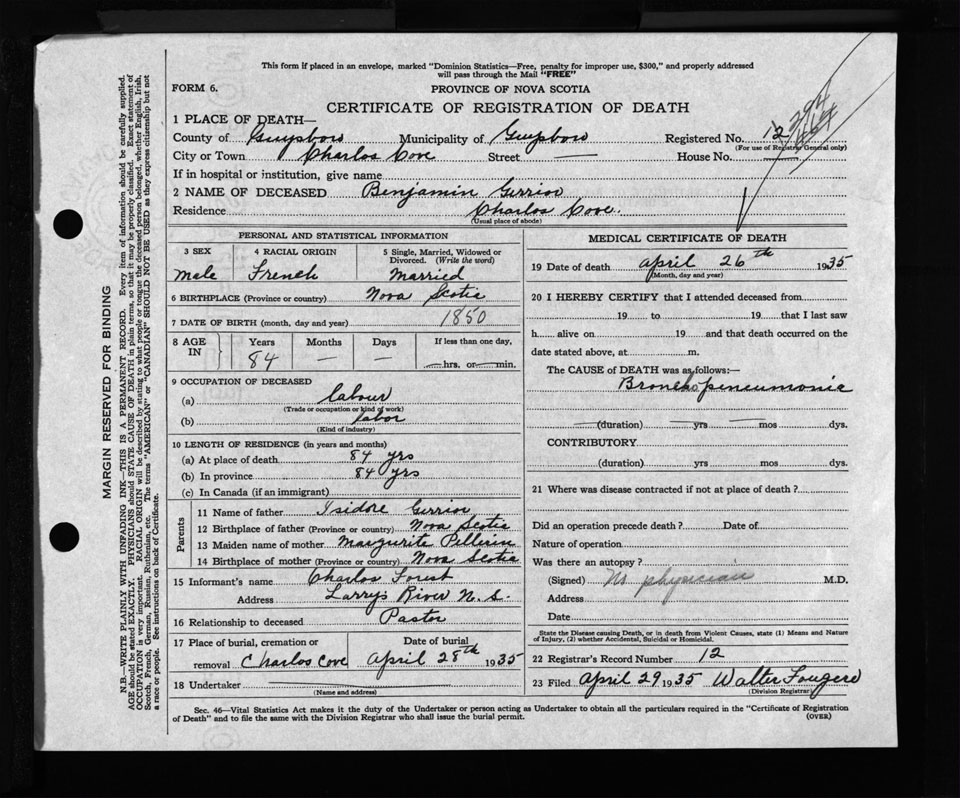 This form if placed in an envelope, marked "Dominion Statistics—Free, penalty for improper use, $300," and properly addressed
will pass through the Mail "FREE"
FORM 6. PROVINCE OF NOVA SCOTIA
CERTIFICATE OF REGISTRATION OF DEATH
1 PLACE OF DEATH—
County of Guysboro Municipality of Guysboro Registered No. 12
(For use of Registrar General only)
City or Town Charlos Cove Street — House No.
If in hospital or institution, give name
2 NAME OF DECEASED Benjamin Gerrior
Residence Charlos Cove.
(Usual place of abode)
PERSONAL AND STATISTICAL INFORMATION
3 SEX 4 RACIAL ORIGIN 5 Single, Married, Widowed or
Divorced. (Write the word)
male French Married
6 BIRTHPLACE (Province or country) Nova Scotia
7 DATE OF BIRTH (month, day and year) 1850
8 AGE IN Years Months Days If less than one day,
84 — — —hrs. or—min.
9 OCCUPATION OF DECEASED
(a) labour
(Trade or occupation or kind of work)
(b) labor
(Kind of industry)
10 LENGTH OF RESIDENCE (in years and months)
(a) At place of death 84 yrs
(b) In province 84 yrs
(c) In Canada (if an immigrant)
Parents
11 Name of father Isidore Gerrior
12 Birthplace of father (Province or country) Nova Scotia
13 Maiden name of mother Margurite Pellerin
14 Birthplace of mother (Province or country) Nova Scotia
15 Informant's name Charlos Forest
Address Larrys River N.S.
16 Relationship to deceased Pastor
17 Place of burial, cremation or Date of burial
removal Charlos Cove April 28th 1935
18 Undertaker
(Name and address)
MEDICAL CERTIFICATE OF DEATH
19 Date of death april 26th 1935
(Month, day and year)
20 I HEREBY CERTIFY that I attended deceased from
19 to 19 that I last saw
h alive on 19 and that death occurred on the
date stated above, at m.
The CAUSE of DEATH was as follows:—
Broncho pneumonia
(duration) yrs mos dys.
CONTRIBUTORY
(duration) yrs mos dys.
21 Where was disease contracted if not at place of death?
Did an operation precede death? Date of
Nature of operation
Was there an autopsy?
(Signed) No physician M.D.
Address
Date
State the Disease causing Death, or in death from Violent Causes, state (1) Means and Nature
of Injury, (2) whether Accidental, Suicidal or Homicidal.
22 Registrar's Record Number 12
23 Filed April 29 1935 Walter Fougere
(Division Registrar)
Sec. 46—Vital Statistics Act makes it the duty of the Undertaker or person acting as Undertaker to obtain all the particulars required in the "Certificate of Registration
of Death" and to file the same with the Division Registrar who shall issue the burial permit. (OVER)
MARGIN RESERVED FOR BINDING
N.B.—WRITE PLAINLY WITH UNFADING INK—THIS IS A PERMANENT RECORD. Every item of information should be carefully supplied.
AGE should be stated EXACTLY. PHYSICIANS should STATE CAUSE OF DEATH in plain terms, so that it may be properly classified. Exact statement of
OCCUPATION is very important. RACIAL ORIGIN will be described by stating to what people or tongue the deceased person belonged, whether English, Irish,
Scotch, French, German, Russian, Ruthenian, etc. The terms "AMERICAN" or "CANADIAN" SHOULD NOT BE USED as they express citizenship but not
a race or people. See instructions on back of Certificate.